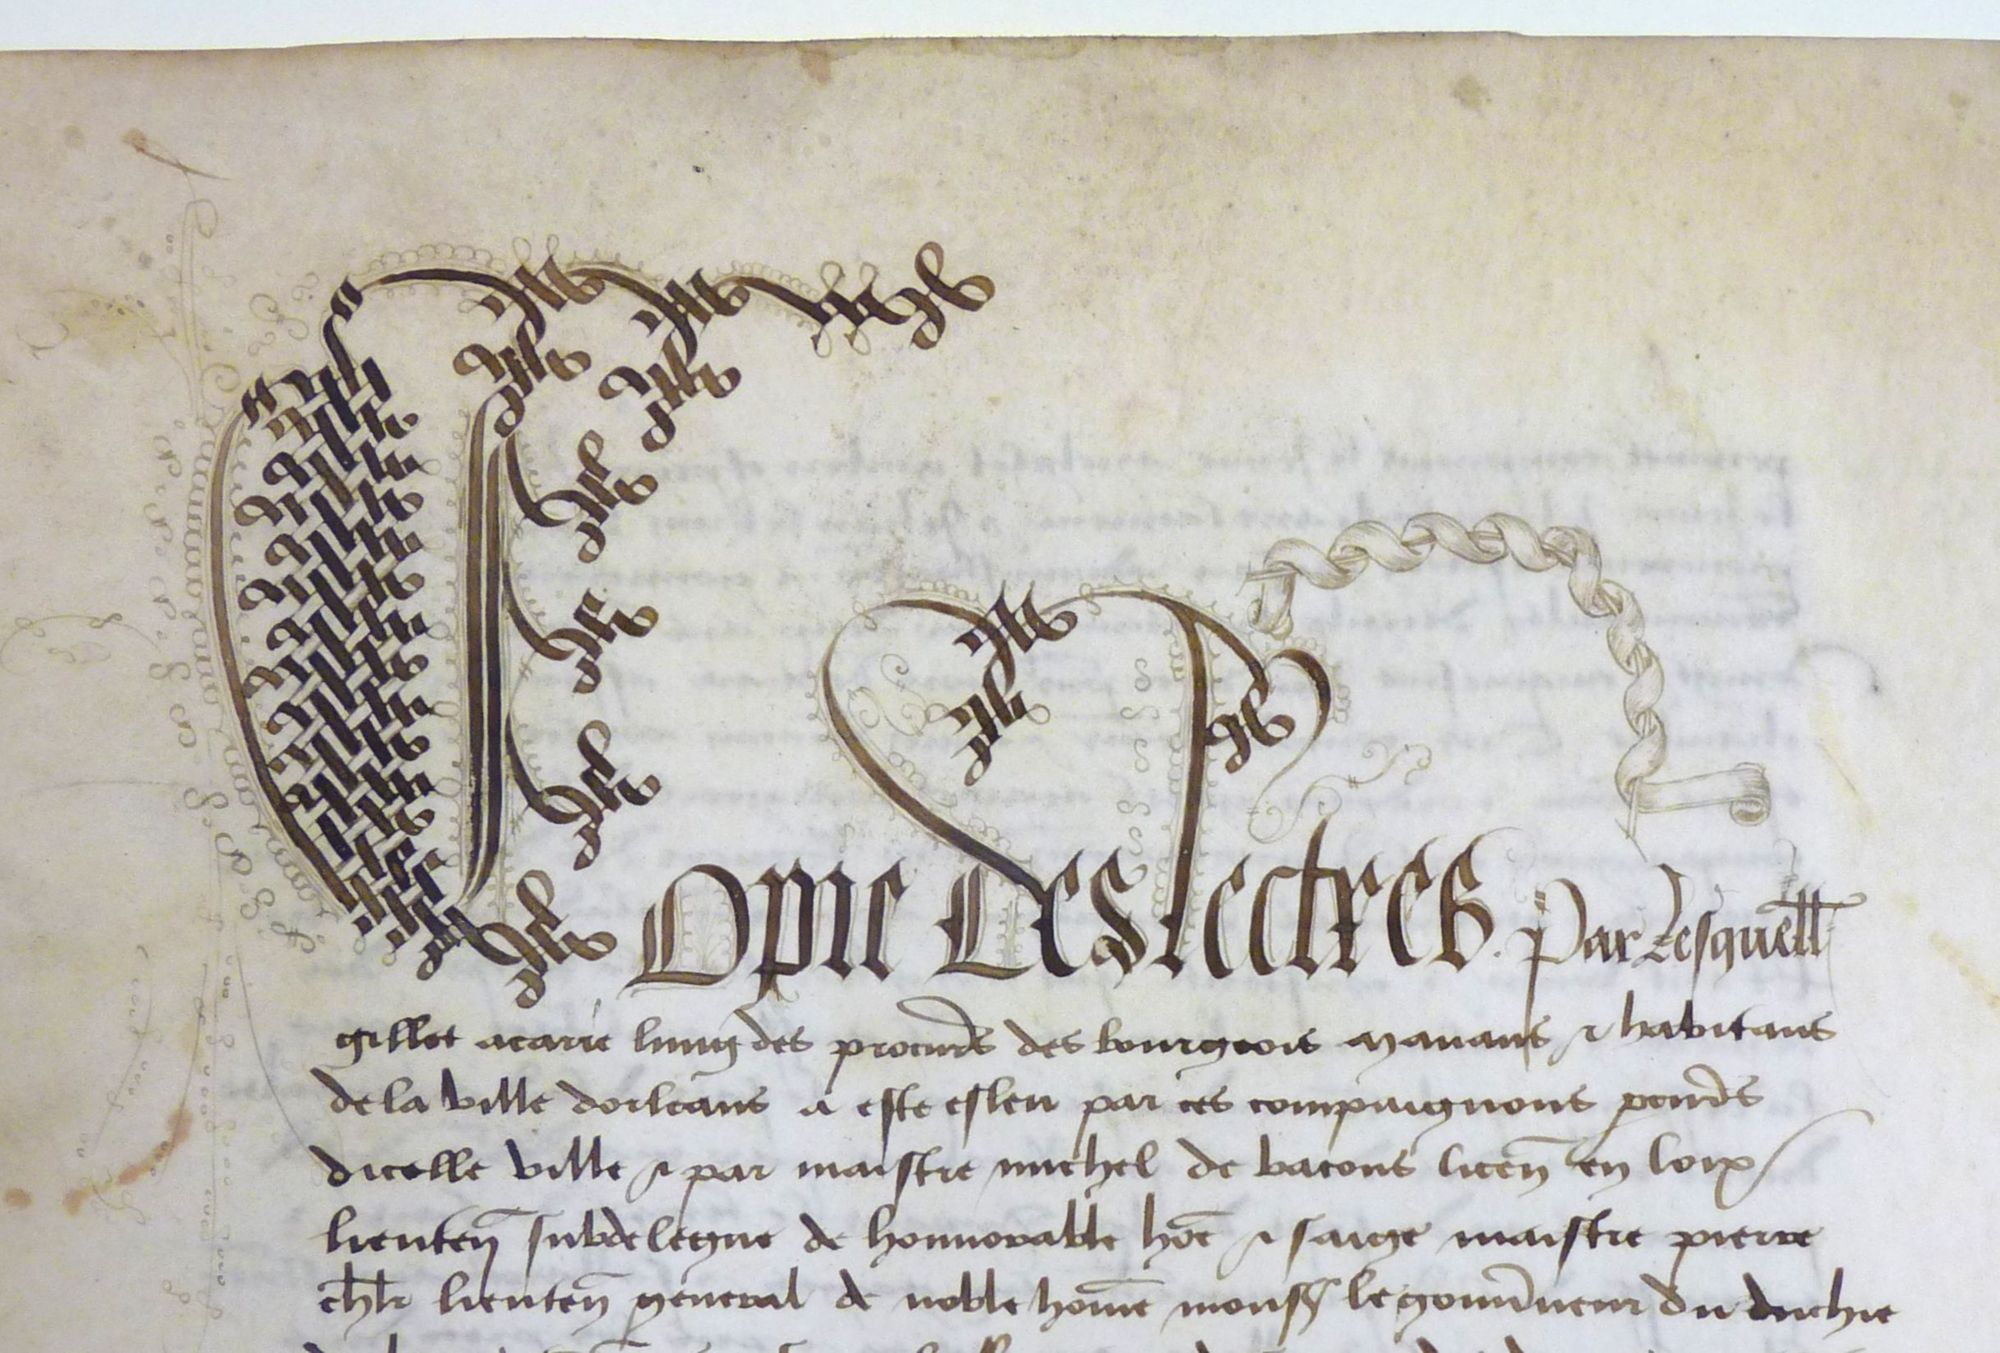 Copie des lectres. Par Lesquell
gillet acarie lung des procur̃s des bourgeois manans ⁊ habitans
de la ville dorleans a este esleu par ces compaignons pcur̃s
dicelle ville ⁊ par maistre michel de bacons licen̄ en loix
lieuten̄ subdelegue de honnorable hōe ⁊ saige maistre pierre
lieuten̄ general de noble home mons le gouv̄neur du duchie